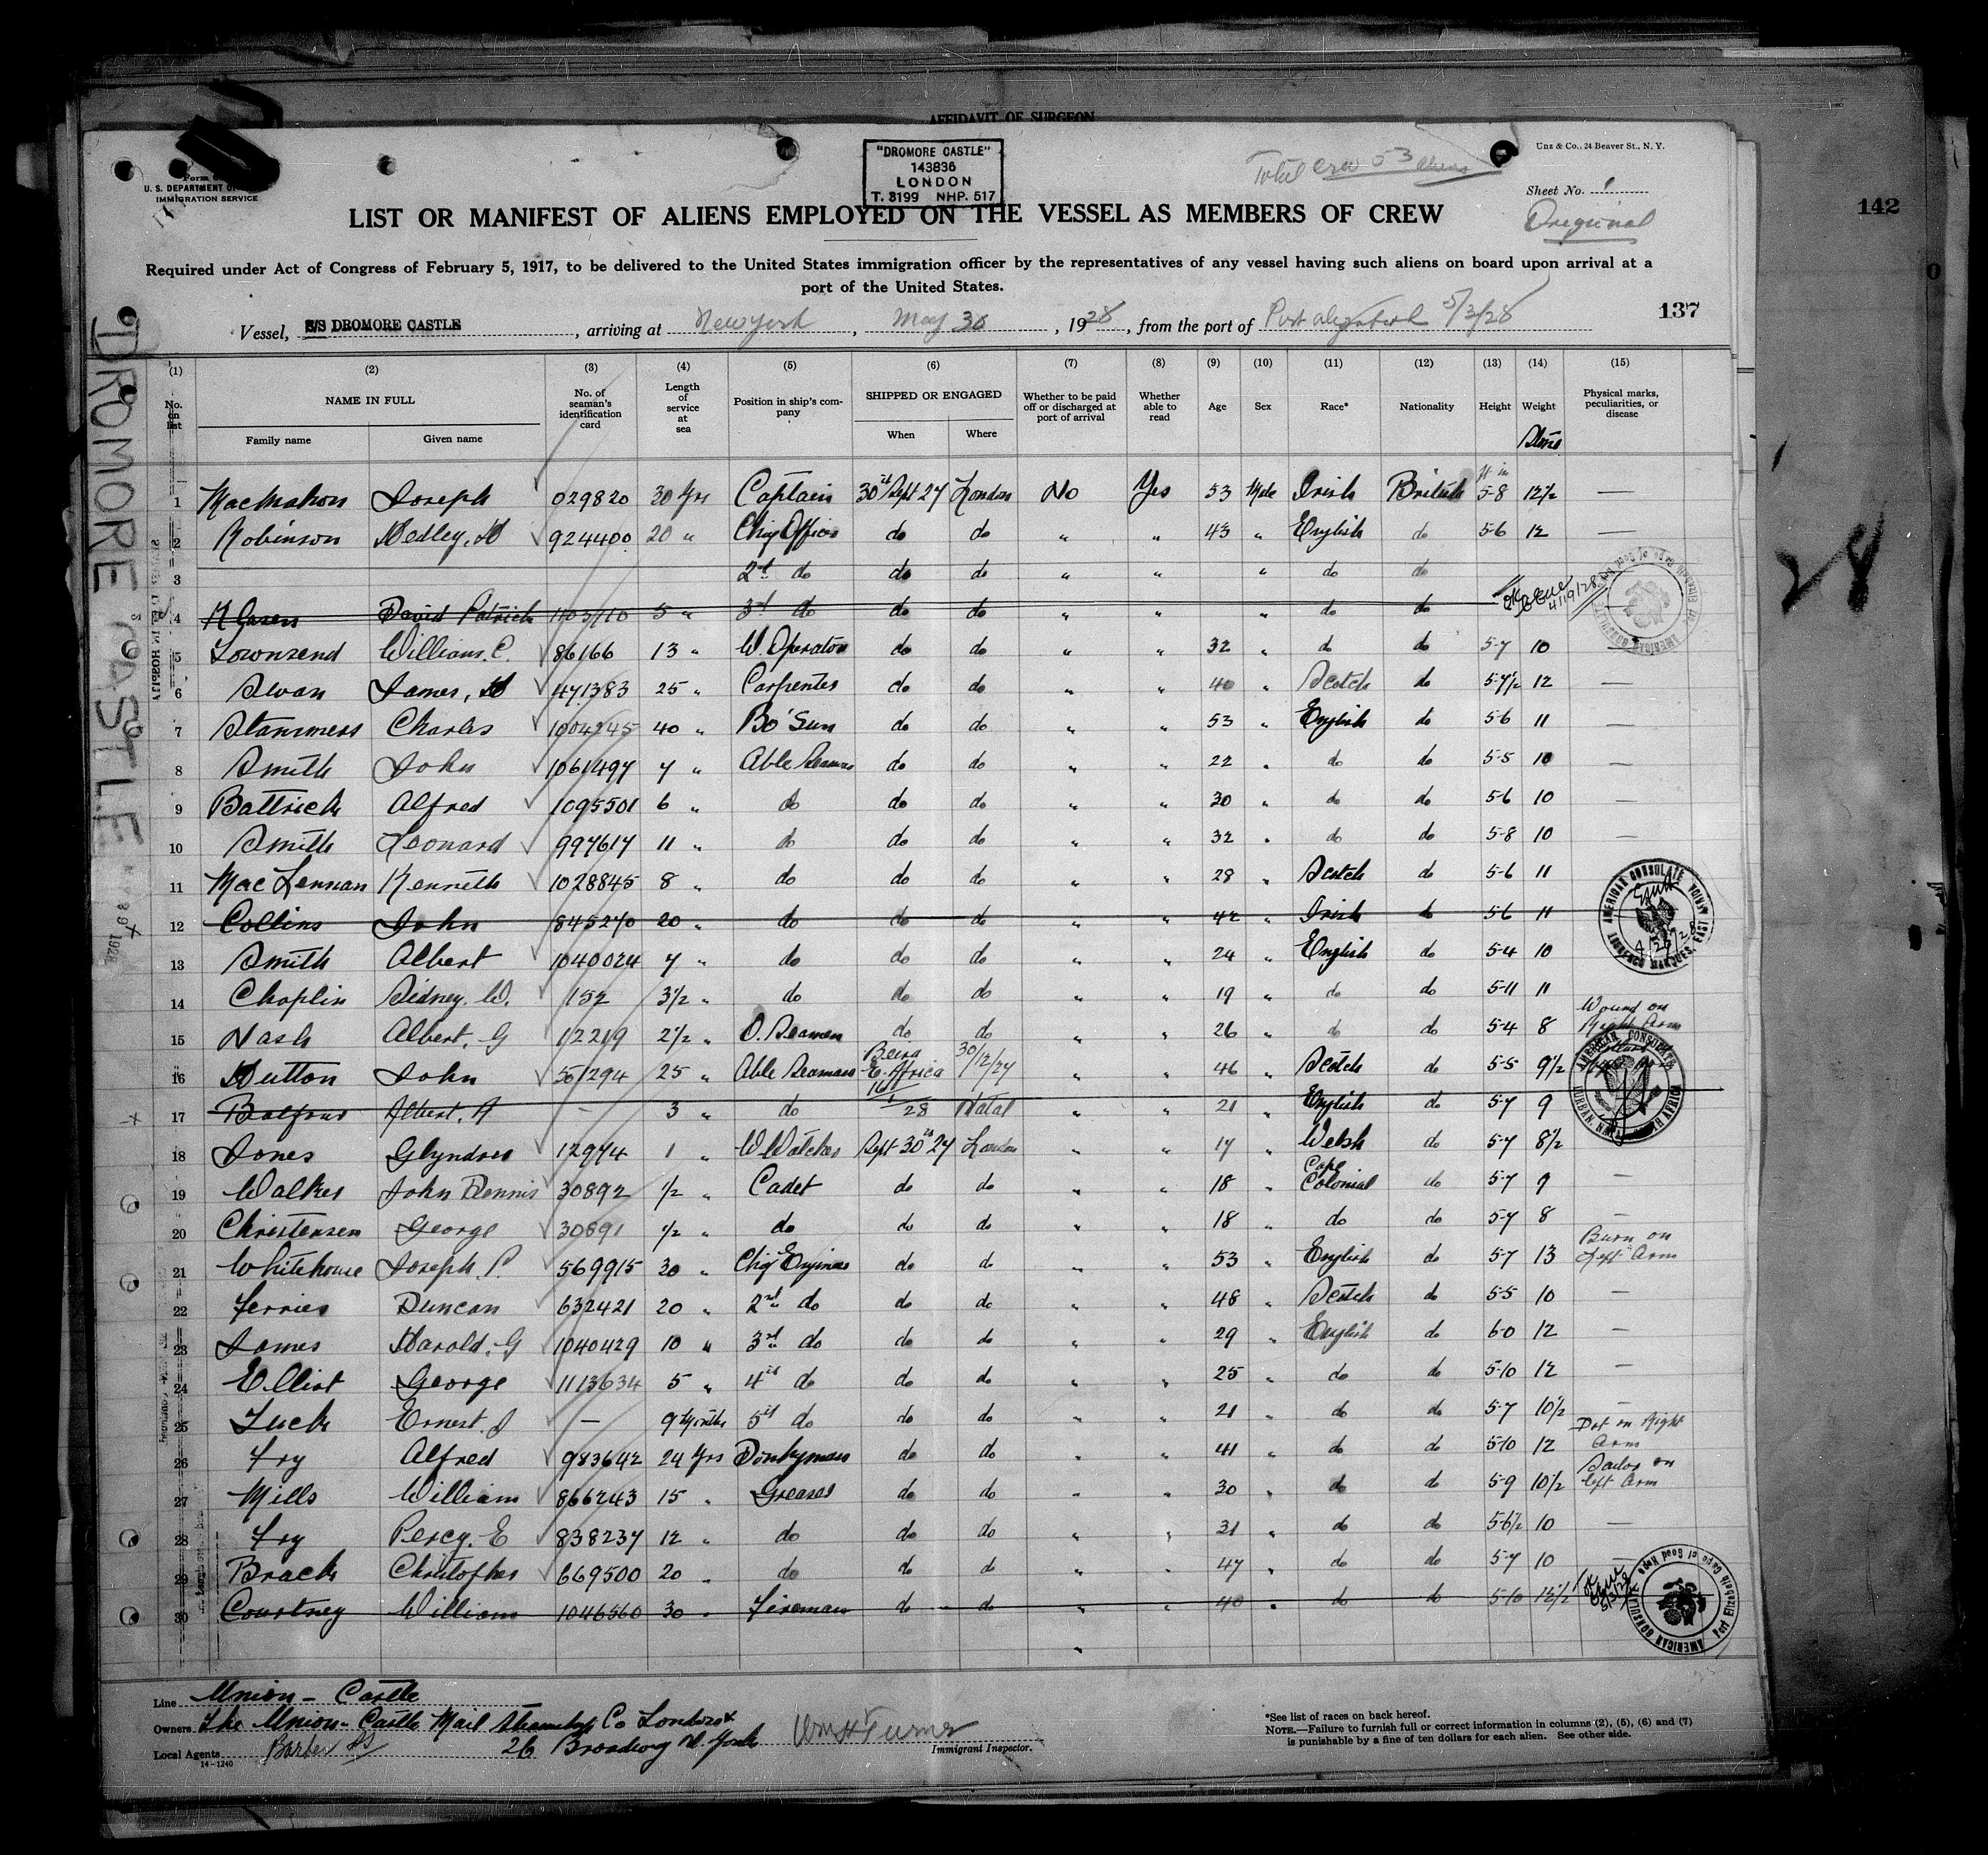 AFFIDAVIT OF SURGEON
U. S. DEPARTMENT OF
IMMIGRATION SERVICE
"DROMORE CASTLE"
143836
LONDON
T. 3199 NHP. 517
Total Crew 53 aliens
Unz & Co., 24 Beaver St., N. Y.
Sheet No. 1
Original
142
LIST OR MANIFEST OF ALIENS EMPLOYED ON THE VESSEL AS MEMBERS OF CREW
Required under Act of Congress of February 5, 1917, to be delivered to the United States immigration officer by the representatives of any vessel having such aliens on board upon arrival at a
port of the United States.
137
Vessel, S/S DROMORE CASTLE, arriving at New York, May 30, 1928, from the port of Port 5/3/28
DROMORE CASTLE
28
(1) (2) (3) (4) (5) (6) (7) (8) (9) (10) (11) (12) (13) (14) (15)
No. on list
NAME IN FULL
Family name Given name
No. of seaman's identification card
Length of service at sea
Position in ship's company
SHIPPED OR ENGAGED
When Where
Whether to be paid off or discharged at port of arrival
Whether able to read
Age
Sex
Race*
Nationality
Height
Weight
Physical marks, peculiarities, or disease
ft in
1 MacMahon Joseph 029820 30 Yrs Captain 30th Sept 27 London No Yes 53 Male Irish British 5-8 12½ —
2 Robinson Hedley, 924400 20 " Chief Officer do do " " 43 " English do 5-6 12 —
3 2nd do do do " " " do do
4 David Patrick 1103110 5 " 3rd do do do " " " do do 4/19/28
5 Townsend William. C. 86166 13 " W. Operator do do " " 32 " do do 5-7 10 —
6 Swan James, 471383 25 " Carpenter do do " " 40 " Scotch do 5-7½ 12 —
7 Stammers Charles 1004245 40 " Bo'Sun do do " " 53 " English do 5-6 11 —
8 Smith John 1061497 7 " Able Seaman do do " " 22 " do do 5-5 10 —
9 Battrick Alfred 1095501 6 " do do do " " 30 " do do 5-6 10 —
10 Smith Leonard 997617 11 " do do do " " 32 " do do 5-8 10 —
11 MacLennan Kenneth 1028845 8 " do do do " " 28 " Scotch do 5-6 11
12 Collins John 845270 20 " do do do " " 42 " Irish do 5-6 11
13 Smith Albert 1040024 7 " do do do " " 24 " English do 5-4 10
14 Chaplin Sidney. W. 152 3½ " do do do " " 19 " do do 5-11 11
15 Nash Albert. G 12219 2½ " O. Seaman do do " " 26 " do do 5-4 8 Wound on Right Arm
16 Hutton John 561294 25 " Able Seaman Beira E. Africa 30/12/27 " " 46 " Scotch do 5-5 9½
17 Albert. A — 3 " do 28 Natal " " 21 " English do 5-7 9
18 Jones Glyndwr 12974 1 " W Watcher Sept 30th 27 London " " 17 " Welsh do 5-7 8½
19 Walker John Dennis 30892 ½ " Cadet do do " " 18 " Cape Colonial do 5-7 9 —
20 Christensen George 30891 ½ " do do do " " 18 " do do 5-7 8 —
21 Whitehouse Joseph. P. 569915 30 " Chief Engineer do do " " 53 " English do 5-7 13 Burn on Left Arm
22 Ferrier Duncan 632421 20 " 2nd do do do " " 48 " Scotch do 5-5 10 —
23 James Harold. G 1040429 10 " 3rd do do do " " 29 " English do 6-0 12 —
24 Elliot George 1113634 5 " 4th do do do " " 25 " do do 5-10 12 —
25 Luck Ernest. J — 9 Months 5th do do do " " 21 " do do 5-7 10½ —
26 Fry Alfred 983642 24 Yrs Donkyman do do " " 41 " do do 5-10 12 Dot on Right Arm
27 Mills William 866243 15 " Greaser do do " " 30 " do do 5-9 10½ Sailor on left Arm
28 Fry Percy. E 838237 12 " do do do " " 31 " do do 5-6½ 10 —
29 Brack Christopher 669500 20 " do do do " " 47 " do do 5-7 10 —
30 Courtney William 1046560 30 " Fireman do do " " 40 " do do 5-10 12½ 5/3/28
AMERICAN CONSULATE LOURENCO MARQUES, EAST AFRICA
AMERICAN CONSULATE DURBAN, NATAL, SOUTH AFRICA
AMERICAN CONSULATE Port Elizabeth Cape of Good Hope
Line Union - Castle
Owners The Union-Castle Mail Steamship Co London
Local Agents Barber SS 26 Broadway N. York
Wm H Turner
Immigrant Inspector.
14-1240
*See list of races on back hereof.
NOTE.—Failure to furnish full or correct information in columns (2), (5), (6) and (7)
is punishable by a fine of ten dollars for each alien. See other side.